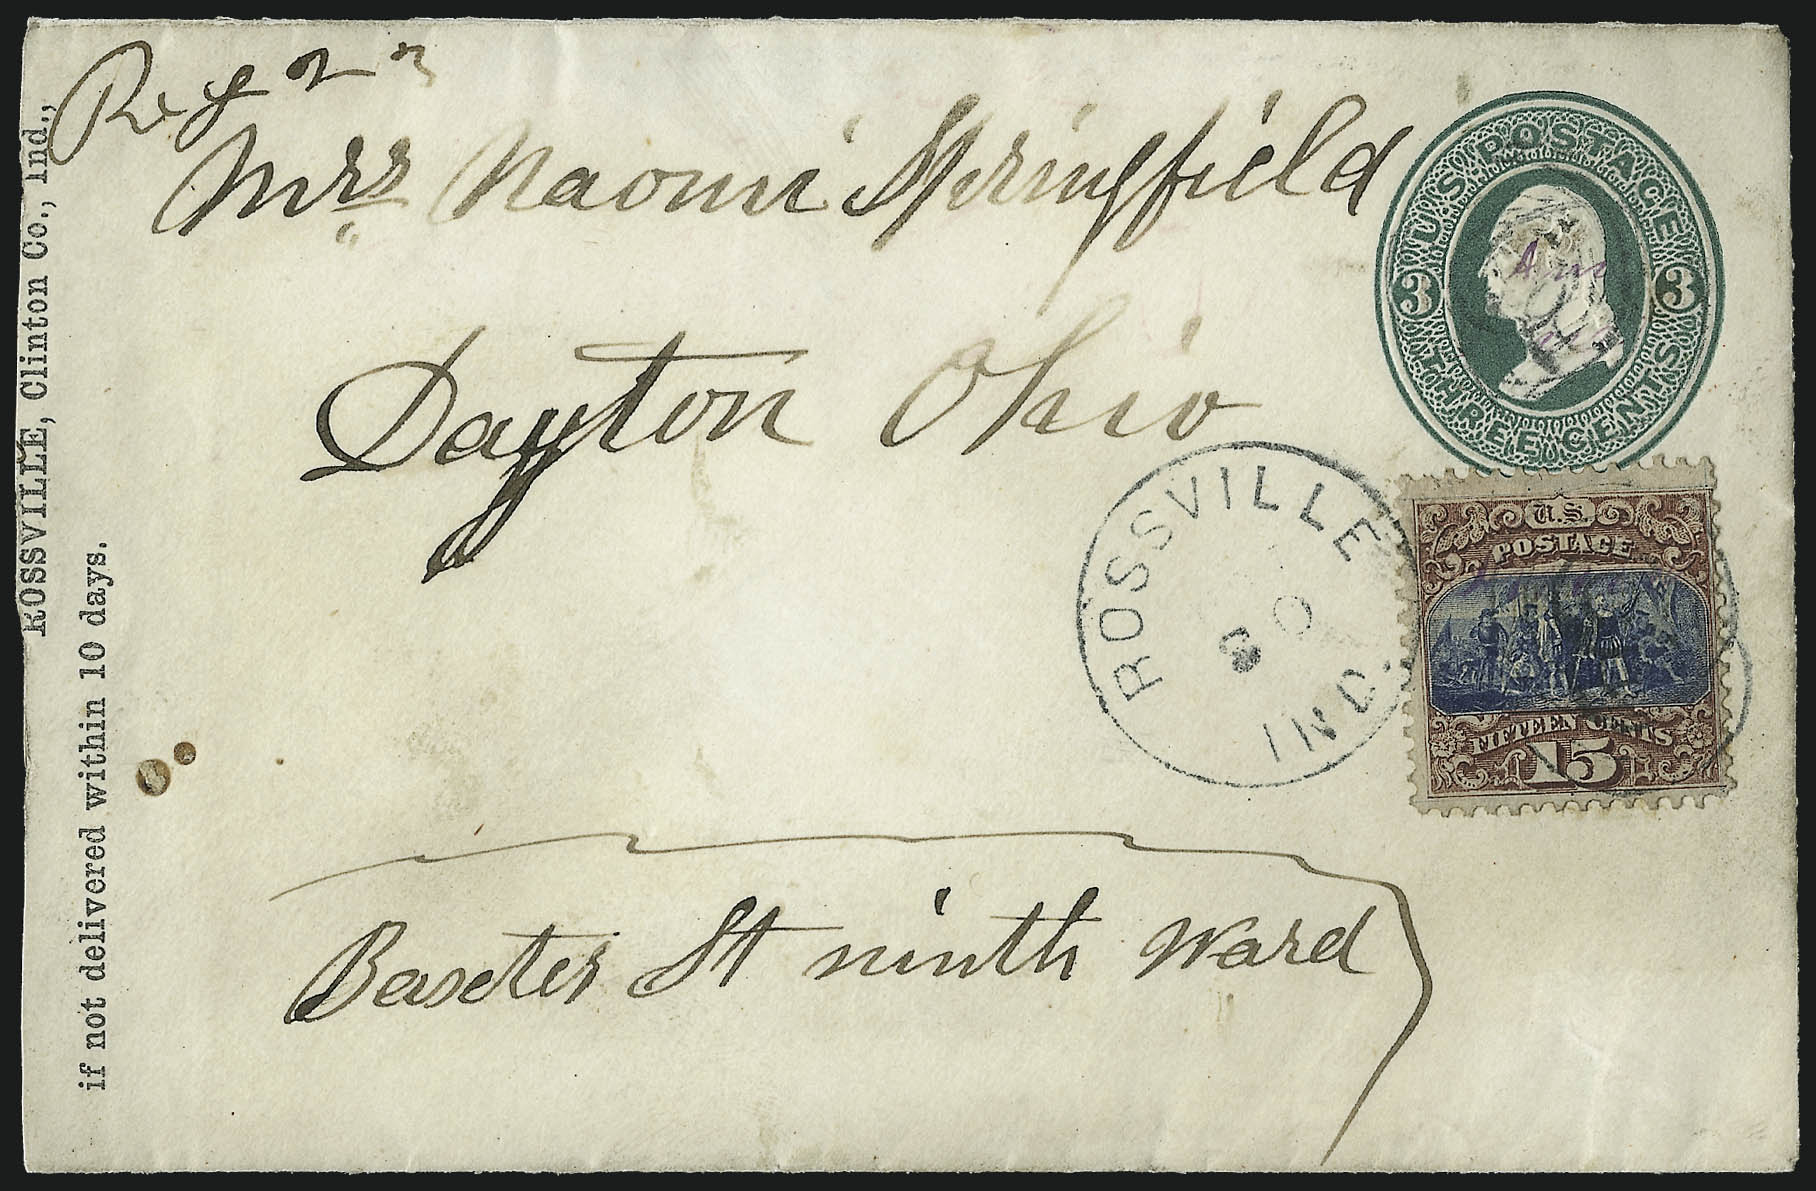 Reg 23
Mrs Naomi Springfield
Dayton Ohio
Baxter St ninth Ward
ROSSVILLE, Clinton Co., Ind.,
if not delivered within 10 days.
US POSTAGE
3 3
THREE CENTS
ROSSVILLE
IND.
U.S.
POSTAGE
FIFTEEN CENTS
15